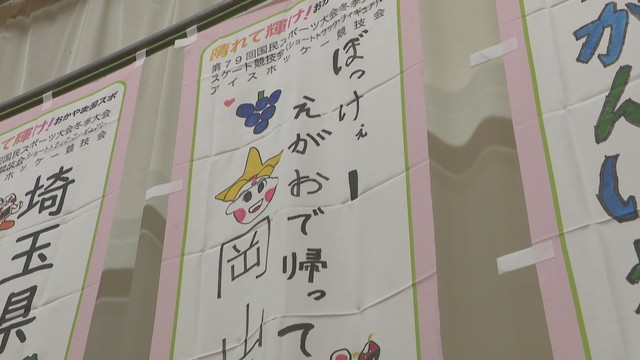 晴れて輝け!おか
第79回国民スポーツ大会冬季大
スケート競技会(ショートトラック・フィギュア)
アイスホッケー競技会
ぼっけぇー
えがおで帰って
岡山
て輝け!おかやま国スポ
国民スポーツ大会冬季大会
競技会
ホッケー競技会
埼玉県
かんいち